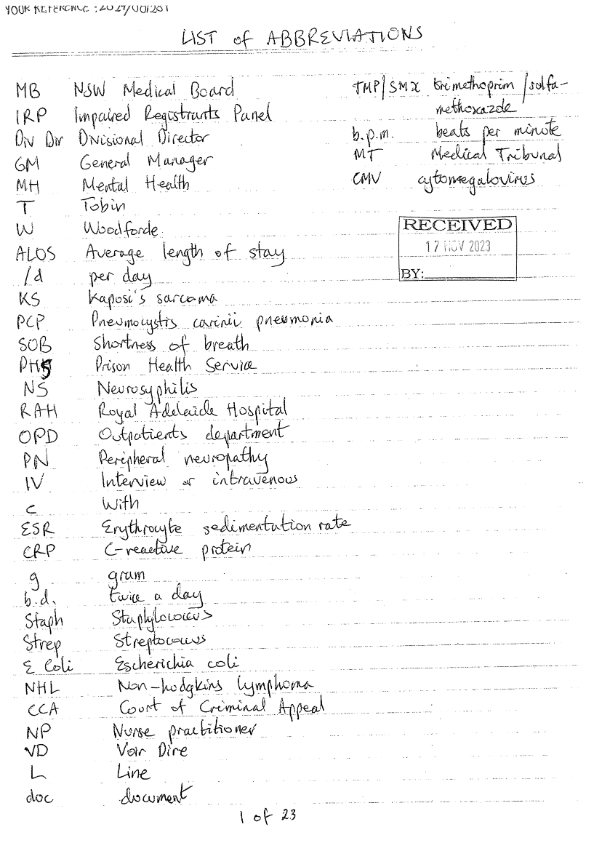 YOUR REFERENCE : 2021/00/281
LIST of ABBREVIATIONS
MB NSW Medical Board
IRP Impaired Registrants Panel
Div Dir Divisional Director
GM General Manager
MH Mental Health
T Tobin
W Woodforde
ALOS Average length of stay
/d per day
KS Kaposi's sarcoma
PCP Pneumocystis carinii pneumonia
SOB Shortness of breath
PHS Prison Health Service
NS Neurosyphilis
RAH Royal Adelaide Hospital
OPD Outpatients department
PN Peripheral neuropathy
IV Interview or intravenous
c With
ESR Erythrocyte sedimentation rate
CRP C-reactive protein
g gram
b.d. twice a day
Staph Staphylococcus
Strep Streptococcus
E Coli Escherichia coli
NHL Non-hodgkins lymphoma
CCA Court of Criminal Appeal
NP Nurse practitioner
VD Voir Dire
L Line
doc document
TMP/SMX trimethoprim/solfa-
methoxazde
b.p.m. beats per minute
MT Medical Tribunal
CMV cytomegalovirus
RECEIVED
17 NOV 2023
BY:
1 of 23